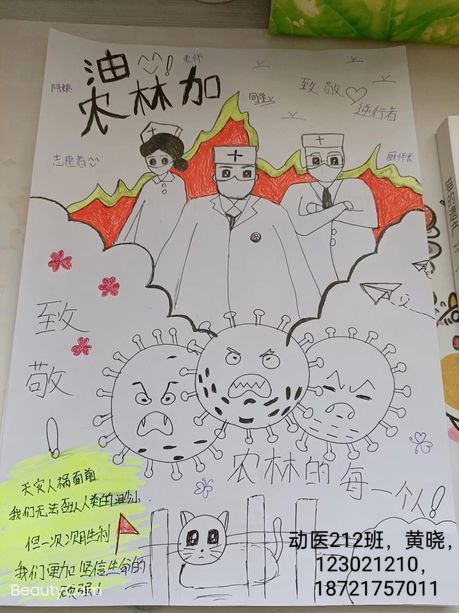 农林加油!
阿姨
老师
同学
志愿者
厨师长
致敬
逆行者
致敬!
农林的每一个人!
天灾人祸面前
我们无法否认人类的渺小.
但一次次胜利
我们更加坚信生命的
动医212班，黄晓，
123021210，
18721757011